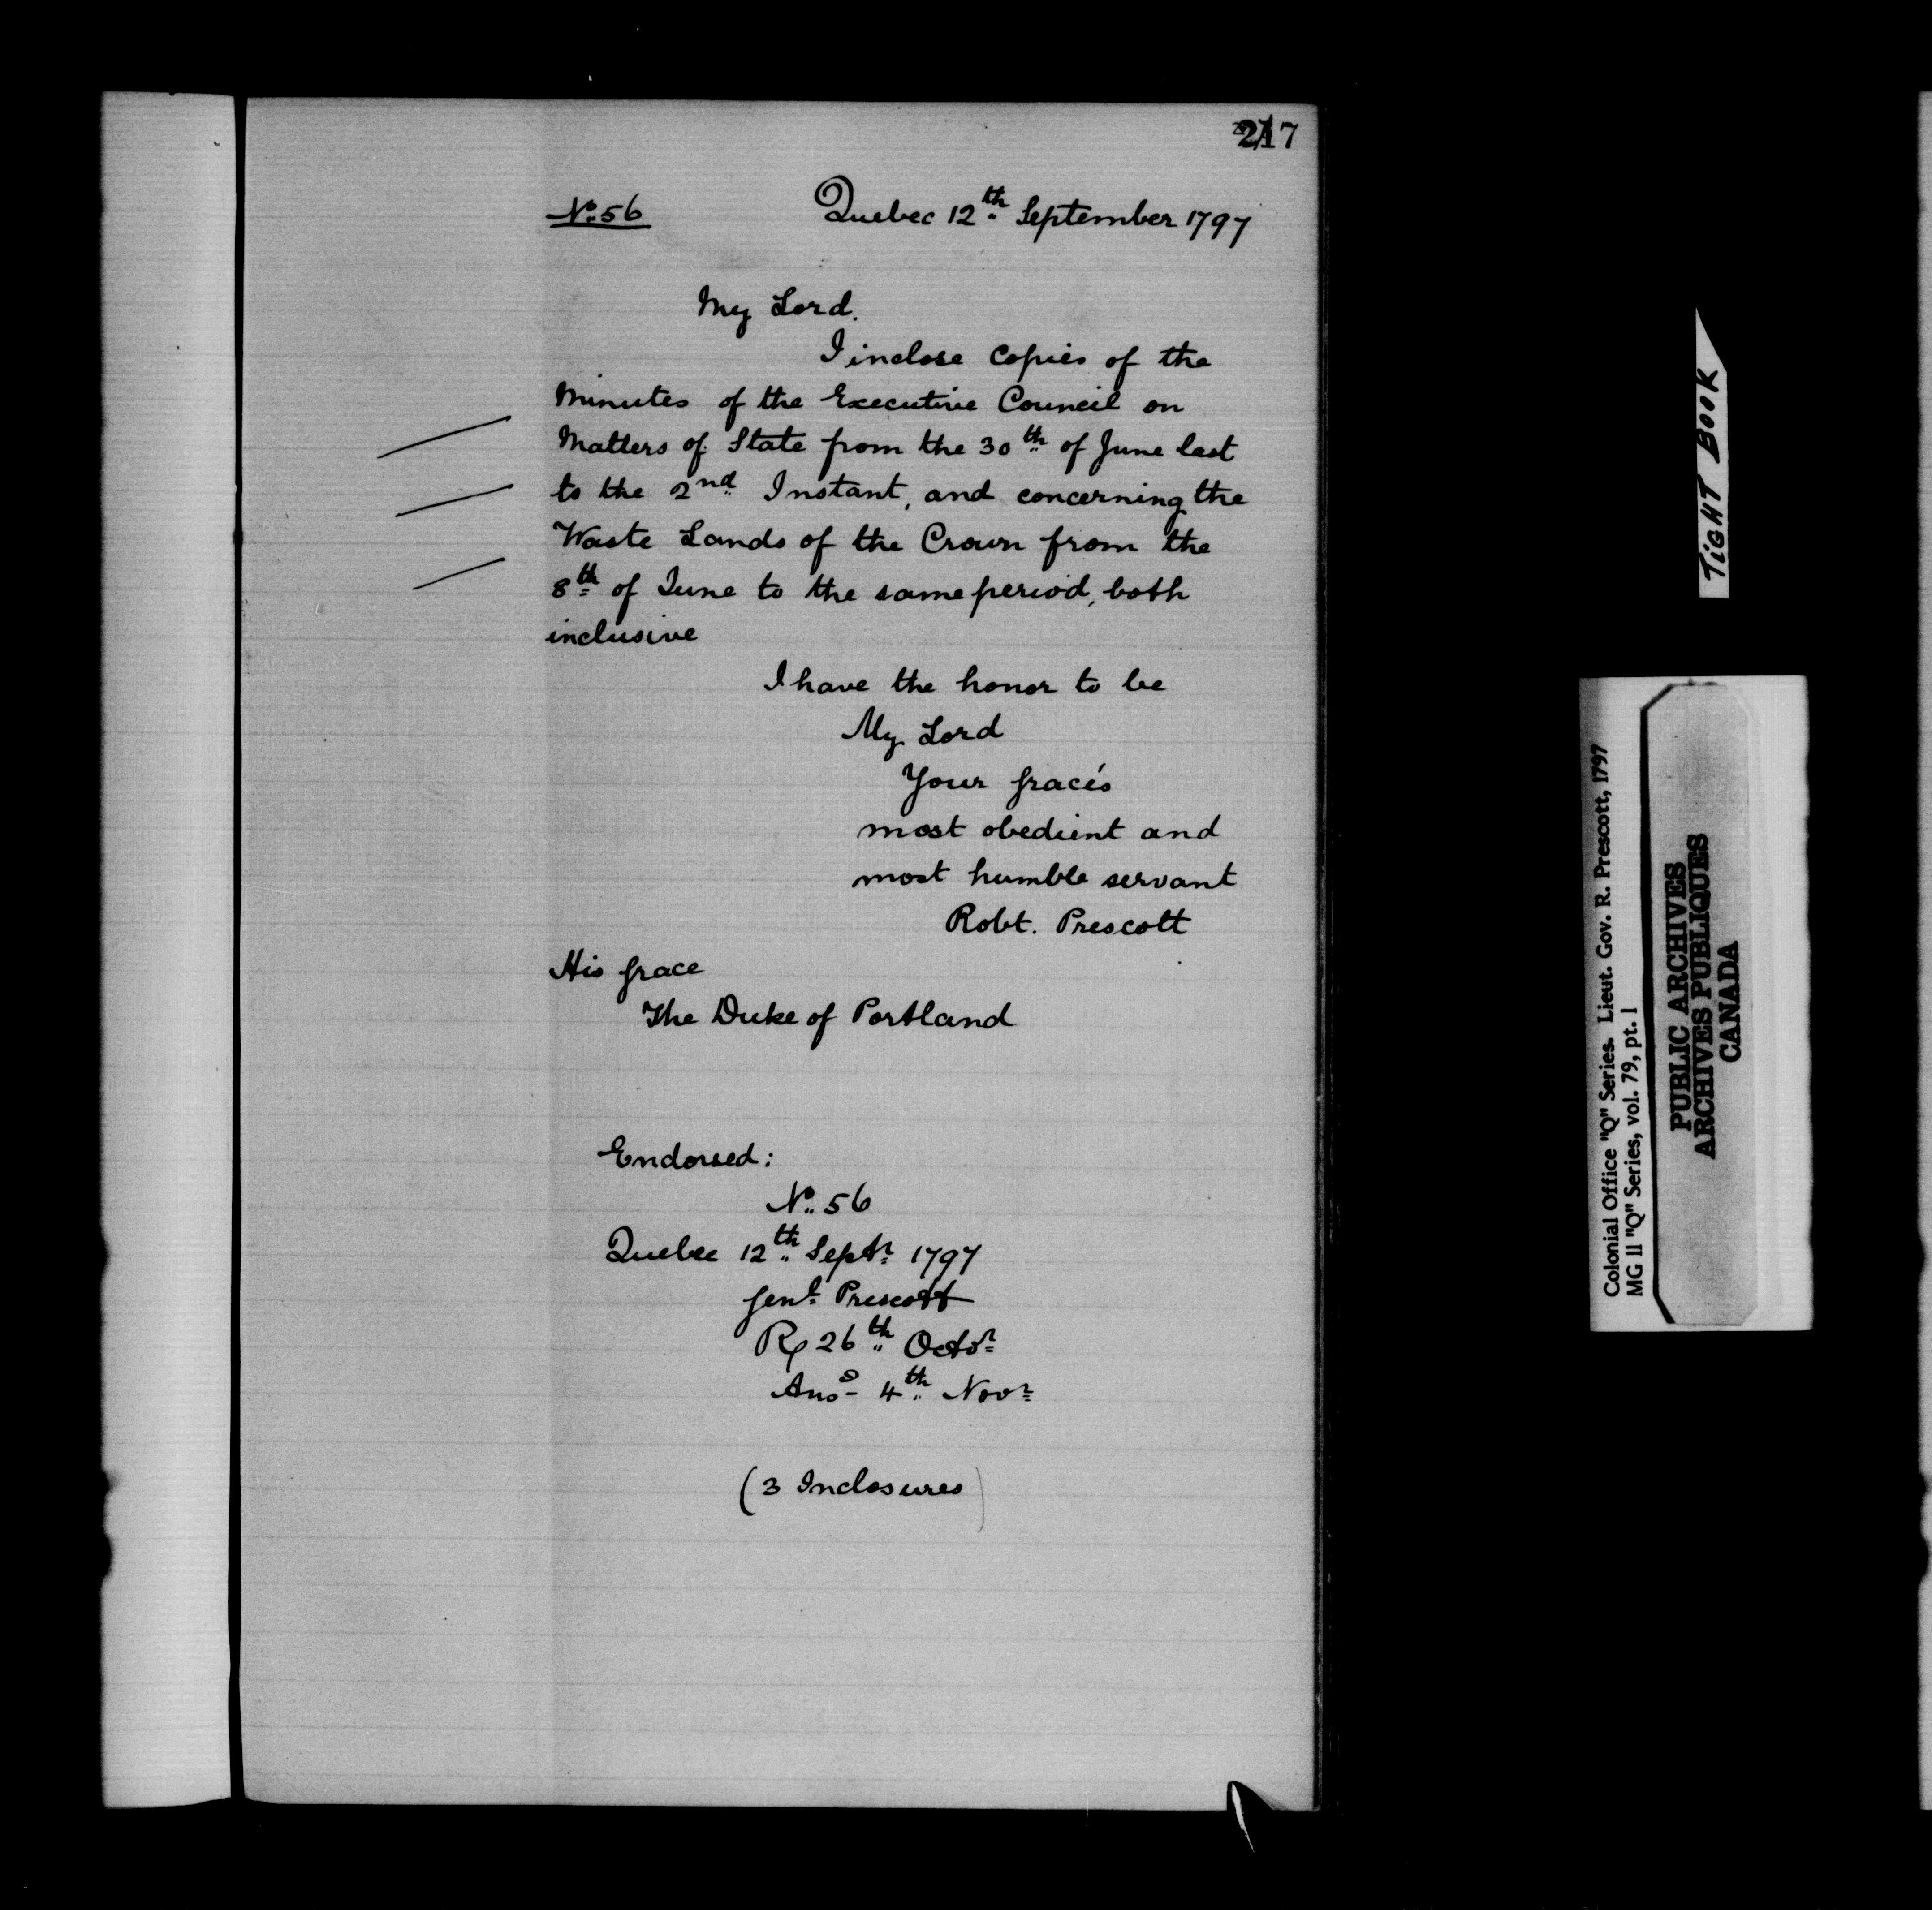 217
No. 56 Quebec 12th September 1797
My Lord.
I inclose Copies of the
Minutes of the Executive Council on
Matters of State from the 30th of June last
to the 2nd Instant, and concerning the
Waste Lands of the Crown from the
8th of June to the same period, both
inclusive
I have the honor to be
My Lord
Your Grace's
most obedient and
most humble servant
Robt. Prescott
His Grace
The Duke of Portland
Endorsed:
No. 56
Quebec 12th Septr 1797
Genl Prescott
R 26th Octor
Ansd 4th Novr
(3 Inclosures)
TIGHT BOOK
Colonial Office "Q" Series. Lieut. Gov. R. Prescott, 1797
MG 11 "Q" Series, vol. 79, pt. 1
PUBLIC ARCHIVES
ARCHIVES PUBLIQUES
CANADA